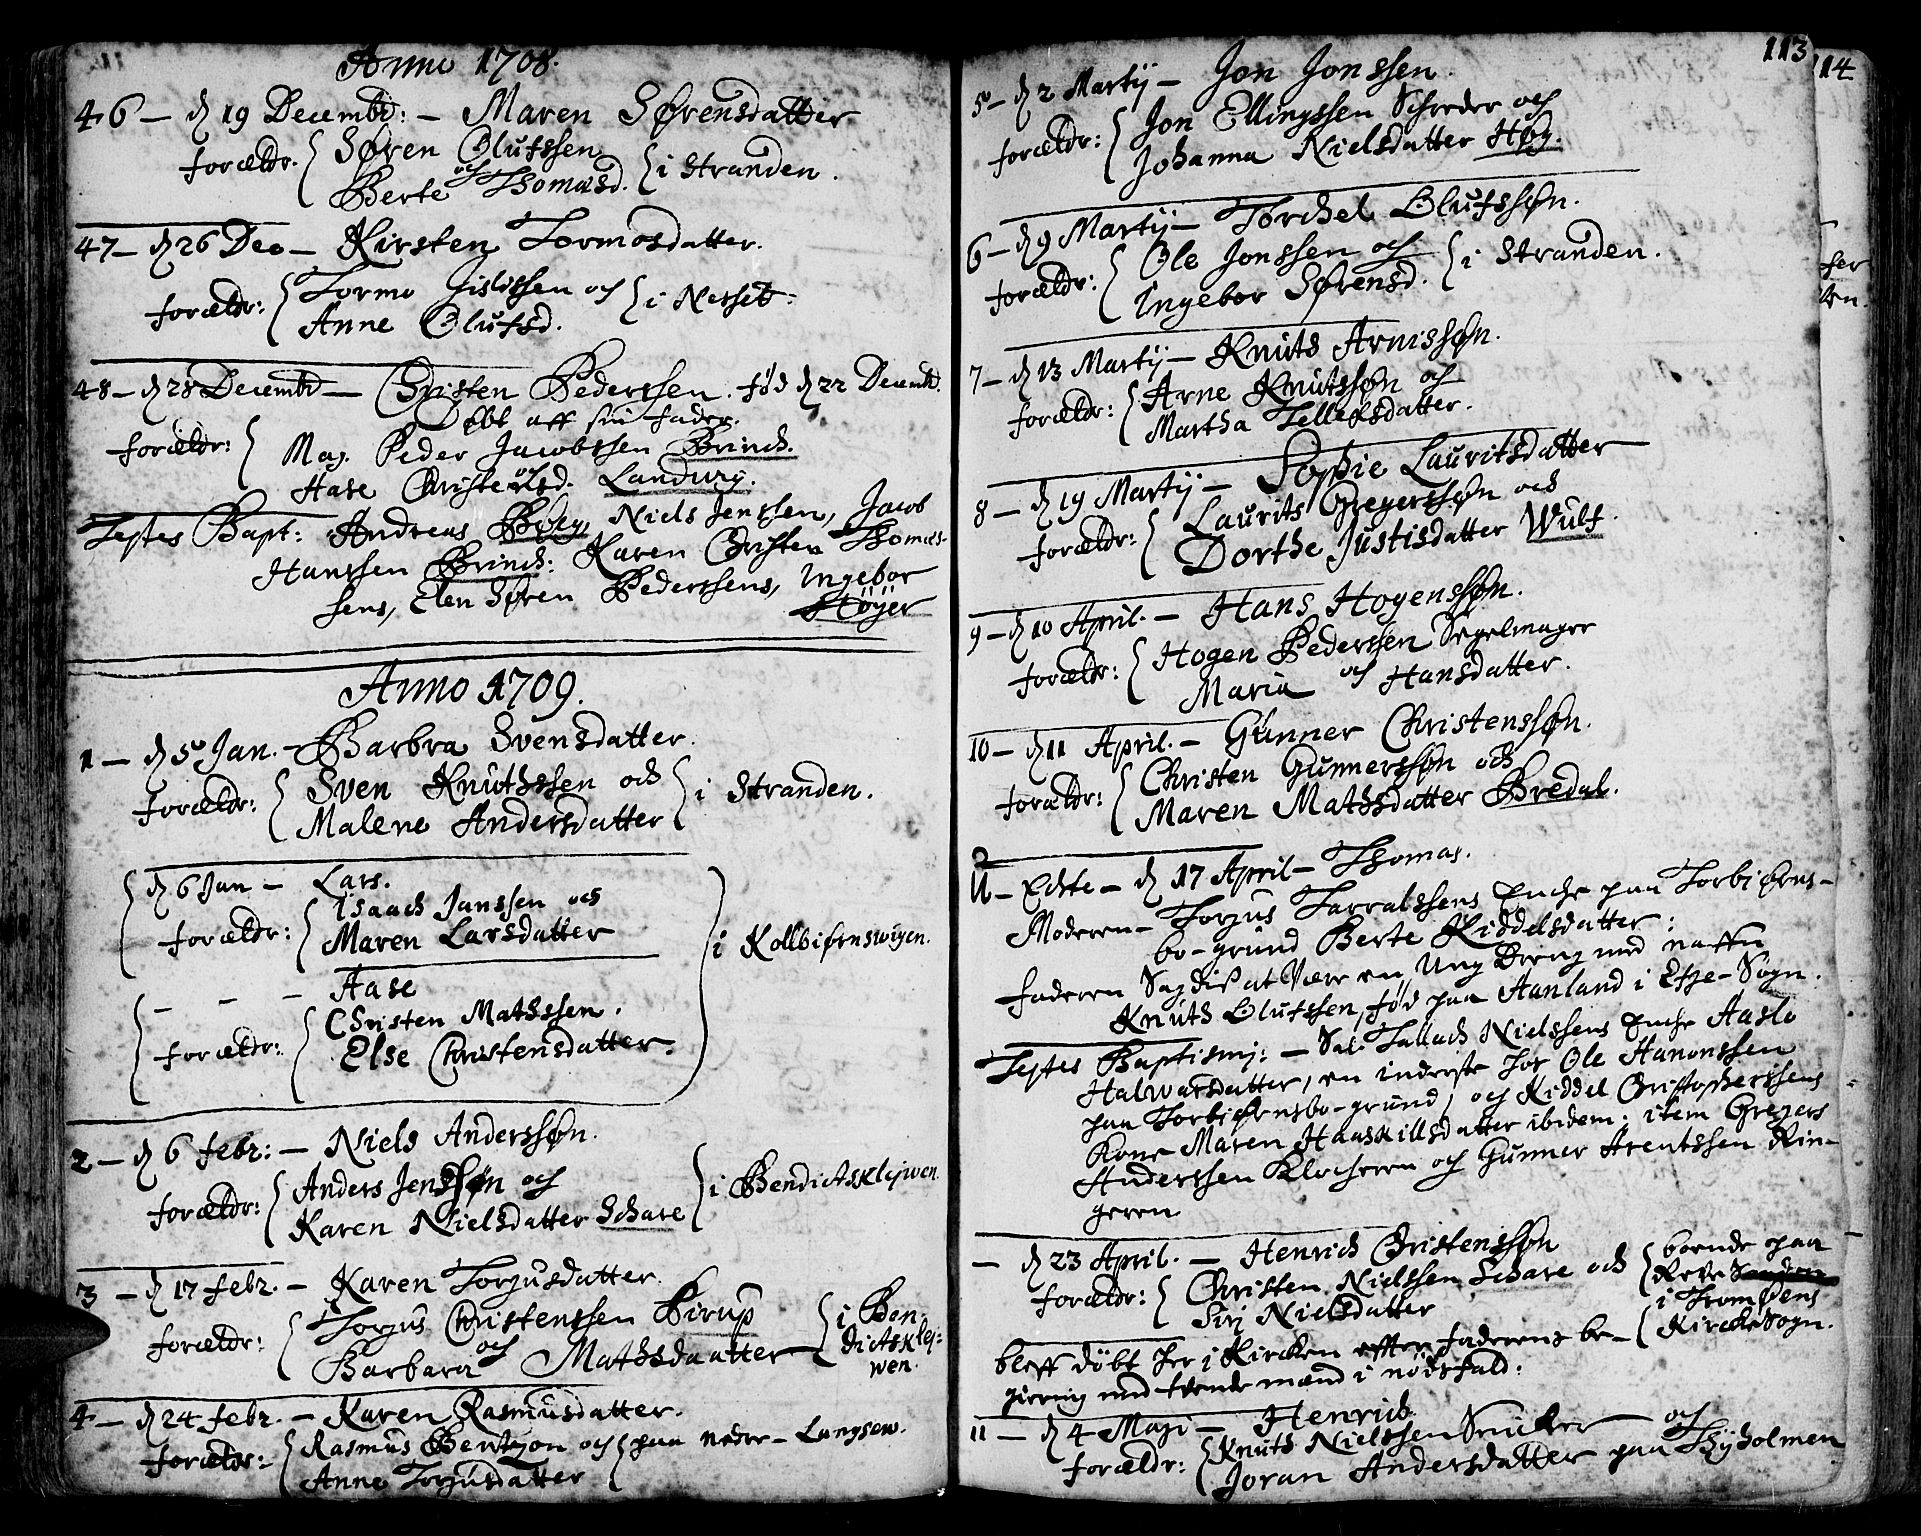 Anno 1708.
46 – d 19 Decembr: – Maren Sørensdatter
forældr. { Søren Olufssen
och
Berte Thomæsd. } i Stranden.
47 – d 26 Dec – Kirsten Tormosdatter.
forældr: { Tormo Gislissen och
Anne Olufsd. } i Nesset.
48 – d 28 Decembr – Christen Pederssen. fød d 22 Decembr.
Døbt aff sin fader.
forældr: { Mag. Peder Jacobssen Brinch.
och
Hase Christensd. Landwig.
Testes Bapt: Andreas Bøeg, Niels Jenssen, Jacob
Hanssen Brinch: Karen Christen Thomæs-
sens, Elen Søren Pederssens, Ingebor
Høyer
Anno 1709.
1 – d 5 Jan. – Barbra Svensdatter.
forældr: { Sven Knuthssen och
Malene Andersdatter } i Stranden.
d 6 Jan – Lars.
forældr: { Isaach Janssen och
Maren Larsdatter
i Kollbiørnswigen.
– – – Aase
forældr: { Christen Mathssen.
Else Christensdatter.
2 – d 6 febr: – Niels Anderssøn.
forældr: { Anders Jenssøn och
Karen Nielsdatter Schare } i Bendictsklejwen.
3 – d 17 febr. – Karen Torjusdatter.
forældr: { Torjus Christenssen Pirup
och
Barbara Mathsdaatter } i Ben-
dictsklej-
wen.
4 – d 24 febr. – Karen Rasmusdatter.
forældr: { Rasmus Bentson och
Anne Torjusdatter } paa neder – Langsew.
113
114
5 – d 2 Martij – Jon Jonssen.
forældr: { Jon Ellingssen Schreder och
Johanna Nielsdatter Høg.
6 – d 9 Martij – Torchel Olufssøn.
forældr: { Ole Jonssen och
Ingebor Sørensd. } i Stranden.
7 – d 13 Martij – Knuts Arnissøn.
forældr: { Arne Knutssøn och
Martha Tellefsdatter.
8 – d 19 Martij – Sophie Lauritsdatter
forældr: { Laurits Gregerssøn och
Dorthe Justisdatter Wulf.
9 – d 10 April. – Hans Hogenssøn.
forældr: { Hogen Pederssen Segelmager
och
Maria Hansdatter.
10 – d 11 April. – Gunner Christenssøn.
forældr: { Christen Gunnerssøn och
Maren Mathsdatter Bredal.
U – Echte – d 17 April – Thomas.
Moderen – Torjus Tarralssens Enche paa Torbiørns-
bo-grund Berte Kiddelsdatter:
faderen Sagdis at Være en Ung Dreng med naffn
Knuth Olufssen, fød paa Aanland i Esse-Sogn.
Testes Baptismj: – Sal. Tallach Nielssens Enche Aaslo
Halworsdatter, en inderste hos Ole Hanonssen
paa Torbiørnsbo-grund, och Kiddel Christopherssens
Kone Maren Haaskillsdatter ibidem; item Gregers
Anderssen Klocheren och Gunner Arentssen Rin-
geren
– d 23 April. – Henrich Christenssøn
forældr: { Christen Nielssen Schare och
Siri Nielsdatter
boende paa
Reve
i Tromøens
Kirche Sogn.
bleff døbt her i Kircken effter faderens be-
giering med tvende mænd i nødsfald:
11 – d 4 Maji – Henrich
forældr: { Knuth Nielssen Snicker och
Joran Andersdatter paa Thyholmen